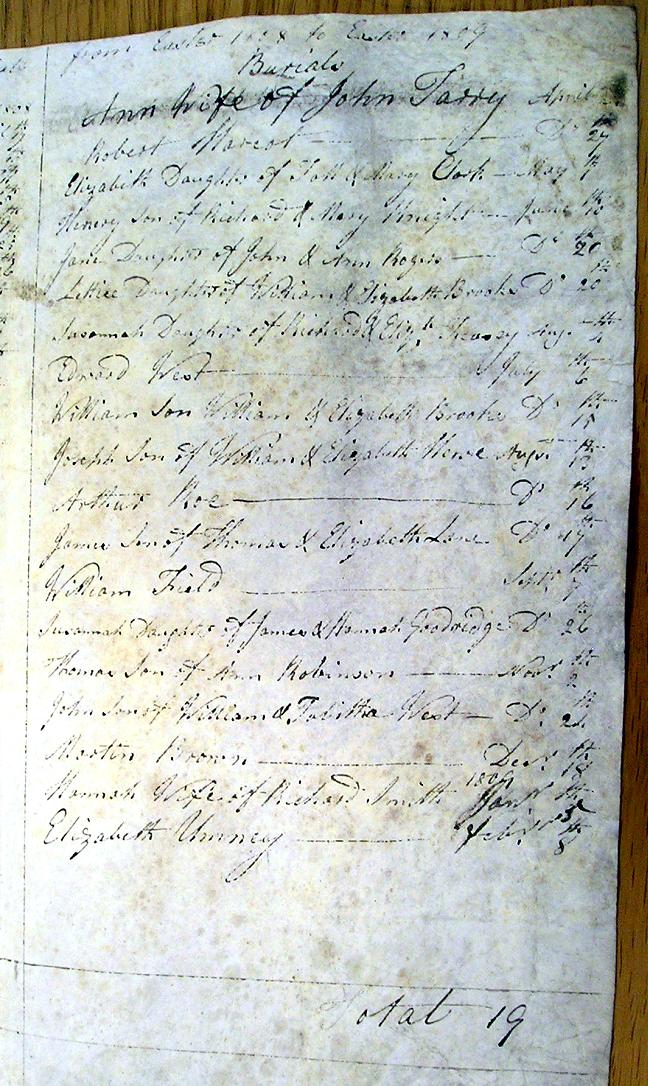 from Easter 1808 to Easter 1809
Burials
Ann Wife of John Tarry April
Robert Do 27th
Elizabeth Daughter of & Mary Clark May
Henery Son of Richard & Mary Knight June 10th
Jane Daughter of John & Ann Rogers Do 20
Lettice Daughter of William & Elizabeth Brooks Do 20th
Susannah Daughter of Richard & Eliz.h 4th
Edward West July 6th
William Son William & Elizabeth Brooks Do 15th
Joseph Son of William & Elizabeth Augst 13th
Arthur Roe Do 16th
James Son of Thomas & Elizabeth Lane Do 17th
William Field Sept.r 7th
Susannah Daughter of James & Hannah Goodridge Do 26th
Thomas Son of Ann Robinson Nov.r 2d
John Son of William & Tabitha West Do
Martin Brown Dec.r 18th
Hannah Wife of Richard Smith 1809 Jan.r
Elizabeth Umney Feb.r 8th
Total 19